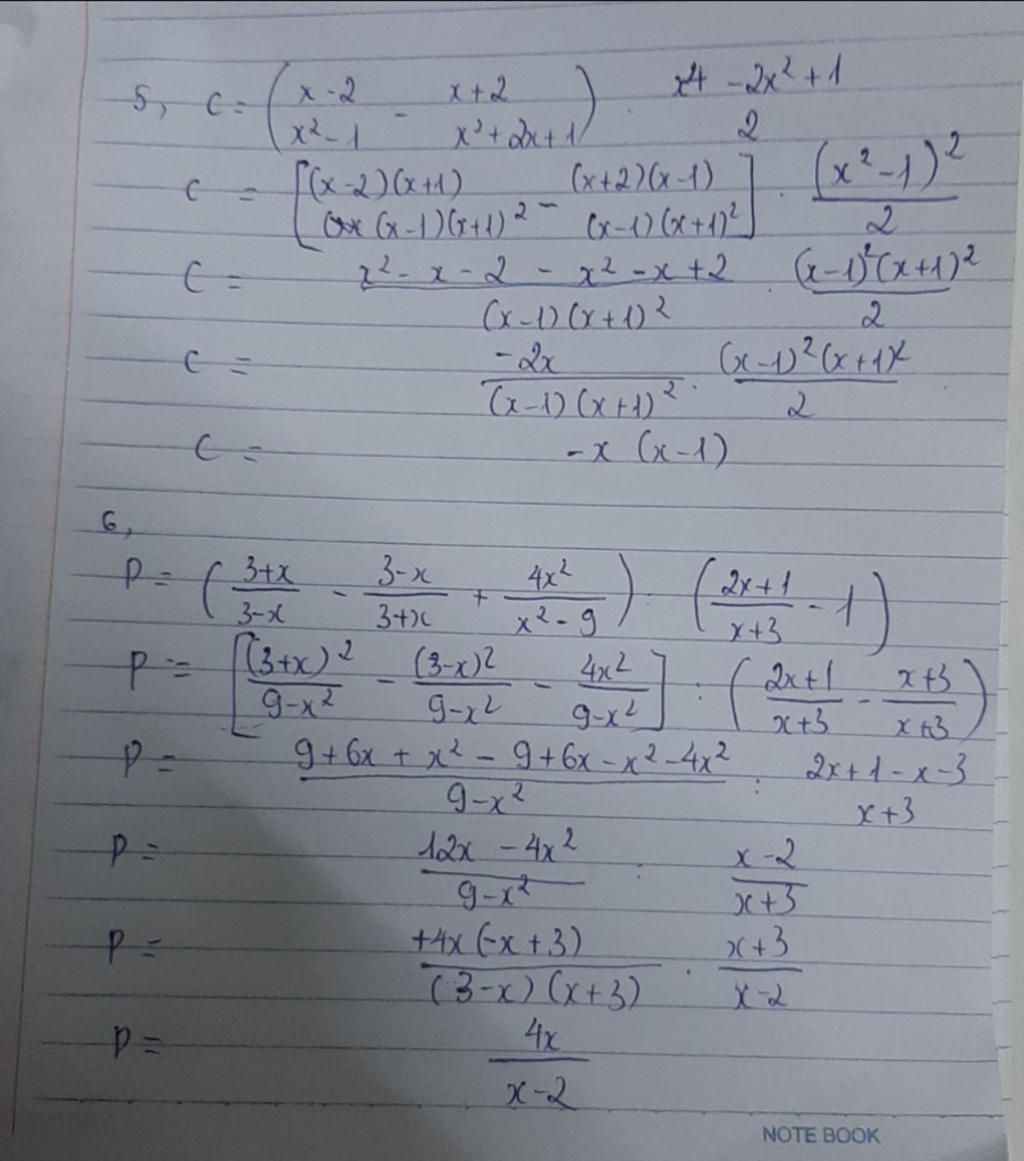 5, C = ( (x-2)/(x²-1) - (x+2)/(x²+2x+1) ) . (x⁴-2x²+1)/2
C = [ (x-2)(x+1)/((x-1)(x+1)²) - (x+2)(x-1)/((x-1)(x+1)²) ] . (x²-1)²/2
C = (x²-x-2-x²-x+2)/((x-1)(x+1)²) . (x-1)²(x+1)²/2
C = -2x/((x-1)(x+1)²) . (x-1)²(x+1)²/2
C = -x (x-1)
6,
P = ( (3+x)/(3-x) - (3-x)/(3+x) + 4x²/(x²-9) ) : ( (2x+1)/(x+3) - 1 )
P = [ (3+x)²/(9-x²) - (3-x)²/(9-x²) - 4x²/(9-x²) ] : ( (2x+1)/(x+3) - (x+3)/(x+3) )
P = (9+6x+x²-9+6x-x²-4x²)/(9-x²) : (2x+1-x-3)/(x+3)
P = (12x-4x²)/(9-x²) : (x-2)/(x+3)
P = +4x(-x+3)/((3-x)(x+3)) . (x+3)/(x-2)
P = 4x/(x-2)
NOTE BOOK